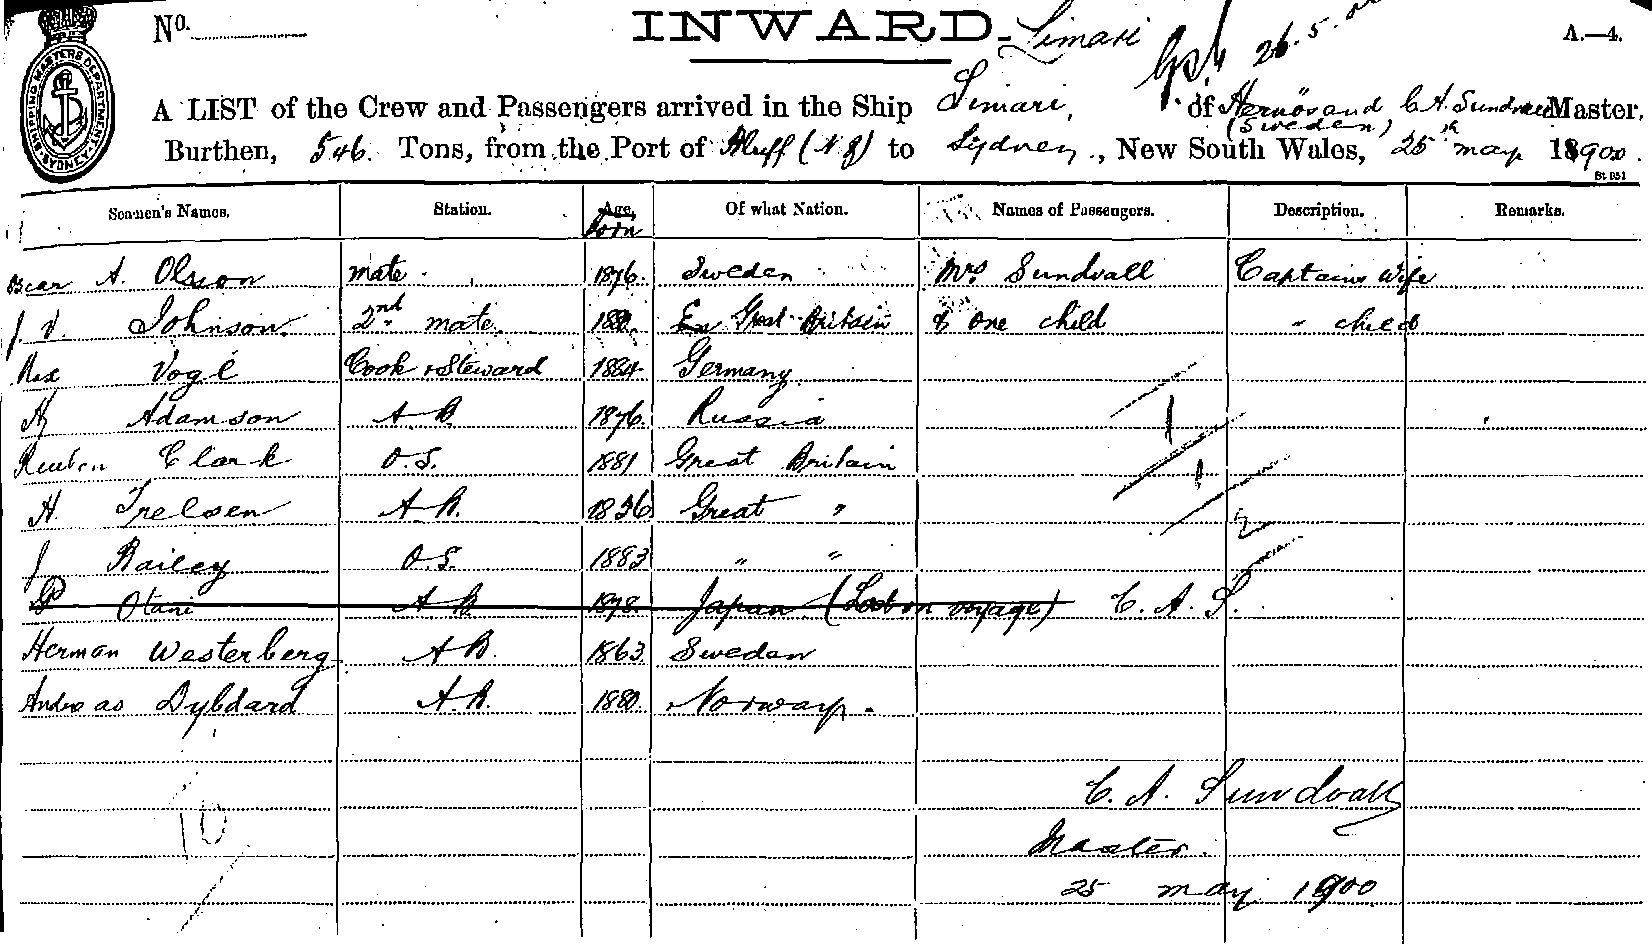 No. INWARD. Limari 26.5.00 A.—4.
SHIPPING MASTERS DEPARTMENT. SYDNEY
A LIST of the Crew and Passengers arrived in the Ship Limari, of Hernösand C A. Sundvall Master,
(Sweden)
Burthen, 546. Tons, from the Port of Bluff (N Z) to Sydney, New South Wales, 25th may 1900.
Seamen's Names. Station. Age, born Of what Nation. Names of Passengers. Description. Remarks.
A. Olsson mate 1876. Sweden Mrs Sundvall Captains wife
J. V. Johnson. 2nd mate. Great Britain & one child " child
Vogl Cook & Steward 1884 Germany.
Adamson A B. 1876. Russia
Reuben Clark O.S. 1881 Great Britain
H. A.B. 1836 Great "
J Bailey O.S. 1883 " "
Otani A B 1878. Japan (Lost on voyage) C. A. S.
Herman Westerberg. A B. 1863. Sweden
Andreas Dybdard A.B. 1880. Norway.
C. A. Sundvall
10
Master.
25 may 1900